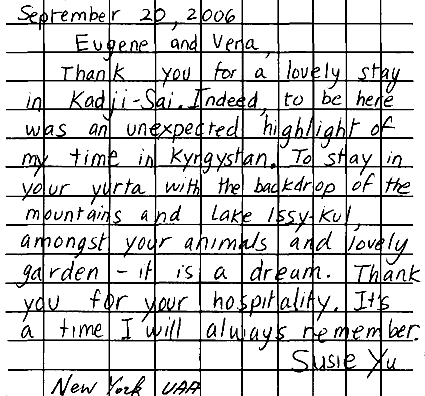 September 20, 2006
Eugene and Vera,
Thank you for a lovely stay
in Kadji-Sai. Indeed, to be here
was an unexpected highlight of
my time in Kyrgystan. To stay in
your yurta with the backdrop of the
mountains and Lake Issy-Kul,
amongst your animals and lovely
garden - it is a dream. Thank
you for your hospitality. It's
a time I will always remember.
Susie Yu
New York UAA